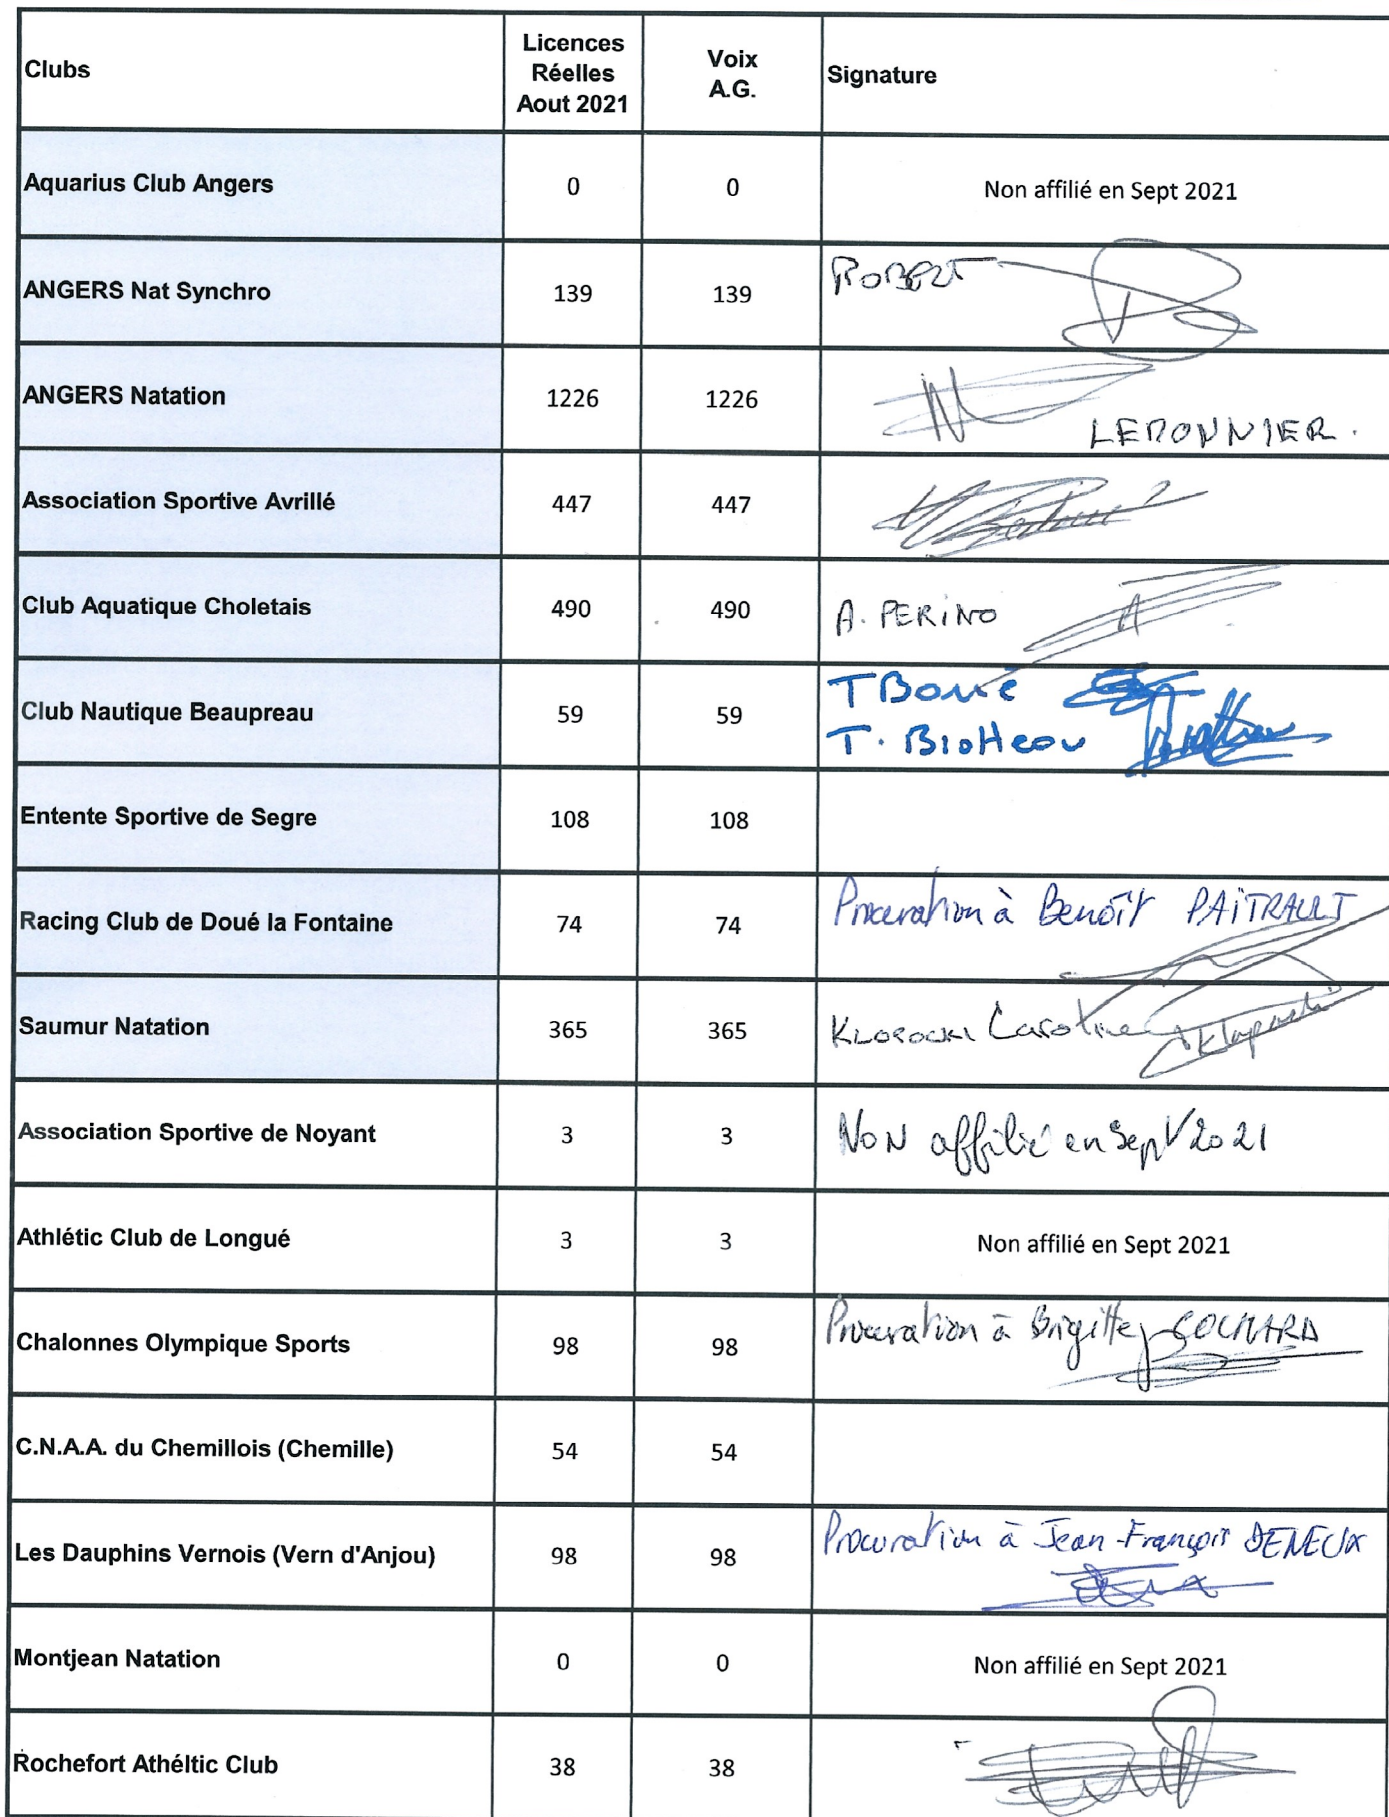 Clubs Licences Réelles Aout 2021 Voix A.G. Signature
Aquarius Club Angers 0 0 Non affilié en Sept 2021
ANGERS Nat Synchro 139 139 ROBERT
ANGERS Natation 1226 1226
Association Sportive Avrillé 447 447
Club Aquatique Choletais 490 490 A. PERINO
Club Nautique Beaupreau 59 59
Entente Sportive de Segre 108 108
Racing Club de Doué la Fontaine 74 74 Procuration à Benoît PAITRAULT
Saumur Natation 365 365 Caroline
Association Sportive de Noyant 3 3 NON affilié en Sept 2021
Athlétic Club de Longué 3 3 Non affilié en Sept 2021
Chalonnes Olympique Sports 98 98 Procuration à Brigitte
C.N.A.A. du Chemillois (Chemille) 54 54
Les Dauphins Vernois (Vern d'Anjou) 98 98 Procuration à Jean-François DENEUX
Montjean Natation 0 0 Non affilié en Sept 2021
Rochefort Athéltic Club 38 38